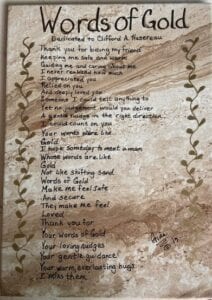 Words of Gold
Dedicated to Clifford A. Nazereau
Thank you for being my friend
Keeping me safe and warm
Guiding me and caring about me
I never realized how much
I appreciated you
Relied on you
And deeply loved you
Someone I could tell anything to
Let no judgement would you deliver
A gentle nudge in the right direction
I should count on you
Your words were like
Gold
I hope someday to meet a man
Whose words are like
Gold
Not like shifting sand
Words of Gold
Make me feel safe
And secure
They make me feel
Loved
Thank you for
Your Words of Gold
Your loving nudges
Your gentle guidance
Your warm, everlasting hugs
I miss them